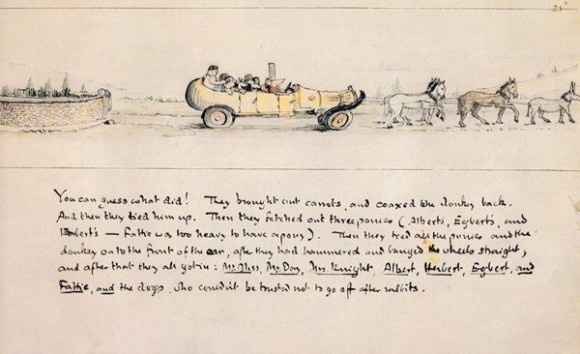 21
You can guess what did! They brought out carrots, and coaxed the donkey back.
And then they tied him up. Then they fetched out three ponies (Albert's, Egbert's, and
Herbert's — Fattie was too heavy to have a pony). Then they tied all the ponies and the
donkey on to the front of the car, after they had hammered and banged the wheels straight,
and after that they all got in: Mr. Bliss, Mr. Day, Mrs. Knight, Albert, Herbert, Egbert, and
Fattie, and the dogs, who couldn't be trusted not to go off after rabbits.